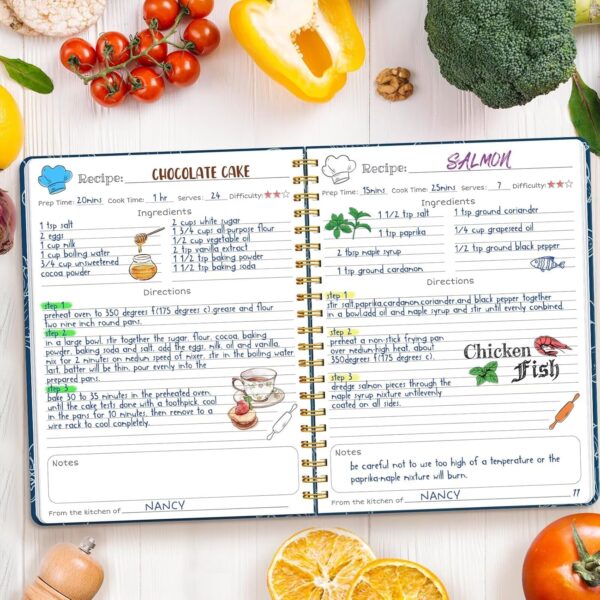 Recipe: CHOCOLATE CAKE
Prep Time: 20mins Cook Time: 1 hr Serves: 24 Difficulty:
Ingredients
1 tsp salt
2 eggs
1 cup milk
1 cup boiling water
3/4 cup unsweetened
cocoa powder
2 cups white sugar
1 3/4 cups all purpose flour
1/2 cup vegetable oil
2 tsp vanilla extract
1 1/2 tsp baking powder
1 1/2 tsp baking soda
Directions
step 1
preheat oven to 350 degrees f(175 degrees c).grease and flour
two nine inch round pans.
step 2
in a large bowl, stir together the sugar, flour, cocoa, baking
powder, baking soda and salt, add the eggs, milk, oil and vanilla,
mix for 2 minutes on medium speed of mixer, stir in the boiling water
last, batter will be thin, pour evenly into the
prepared pans.
step 3
bake 30 to 35 minutes in the preheated oven,
until the cake tests done with a toothpick, cool
in the pans for 10 minutes, then remove to a
wire rack to cool completely.
Notes
From the kitchen of NANCY
Recipe: SALMON
Prep Time: 15mins Cook Time: 25mins Serves: 7 Difficulty:
Ingredients
1 1/2 tsp salt
1 tsp paprika
2 tbsp maple syrup
1 tsp ground cardamon
1 tsp ground coriander
1/4 cup grapeseed oil
1/2 tsp ground black pepper
Directions
step 1
stir salt,paprika,cardamon,coriander and black pepper together
in a bowl.add oil and maple syrup and stir until evenly combined.
step 2
preheat a non-stick frying pan
over medium-high heat, about
350degrees f(175 degrees c).
Chicken
Fish
step 3
dredge salmon pieces through the
maple syrup mixture untilevenly
coated on all sides.
Notes
be careful not to use too high of a temperature or the
paprika-maple mixture will burn.
From the kitchen of NANCY
11